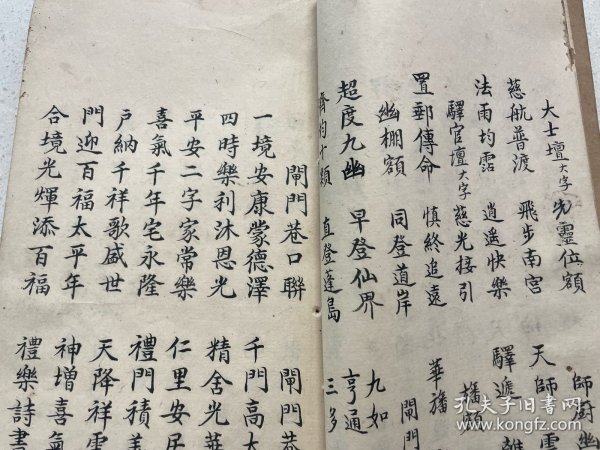 大士壇大字 先靈位額
慈航普渡 飛步南宮
法雨均霑 逍遥快樂
驛官壇大字 慈光接引
置郵傳命 慎終追遠
幽棚額 同登道岸
超度九幽 早登仙界
直登蓬島
師廚幽
天師雲
驛遞
旛額
華旛
閘門
九如
亨通
三多
閘門巷口聯
一境安康蒙德澤
四時樂利沐恩光
平安二字家常樂
喜氣千年宅永隆
户納千祥歌盛世
門迎百福太平年
合境光輝添百福
閘門巷
千門高大
精舍光華
仁里安居
禮門積美
天降祥雲
神增喜氣
禮樂詩書
孔夫子旧书网
www.kongfz.com